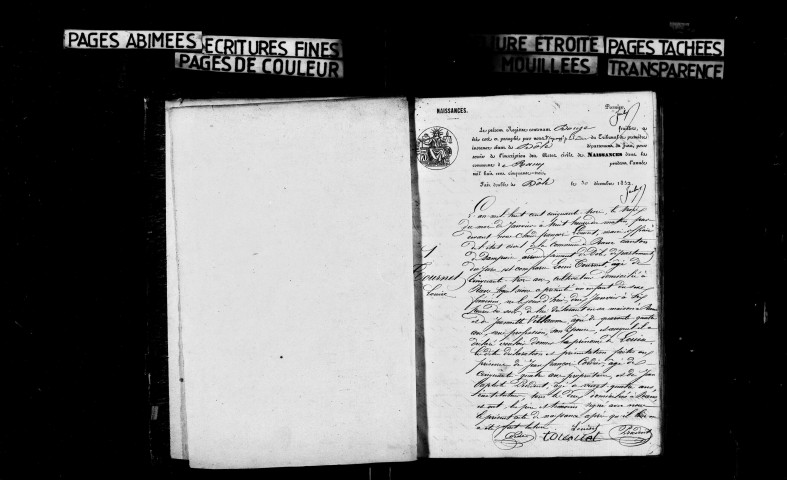 PAGES ABIMEES
ECRITURES FINES
PAGES DE COULEUR
URE ÉTROITE
PAGES TACHÉES
MOUILLÉES
TRANSPARENCE
NAISSANCES.
Premier
Le présent Registre contenant Douze feuillets, a
été coté et paraphé par nous du Tribunal de première
instance séant de Dole département du Jura, pour
servir de l'inscription des Actes civils de NAISSANCES dans la
commune de Rans pendant l'année
mil huit cent cinquante-trois.
Fait double à Dole le décembre 1852.
1
Tournet
Louise
L'an mil huit cent cinquante trois, le treize
du mois de Janvier à huit heures du matin, par
devant nous Claude françois maire officier
de l'état civil de la commune de Rans canton
de Dampierre arrondissement de Dole, département
du Jura, est comparu Louis Tournet, âgé de
cinquante trois ans, cultivateur domicilié à
Rans, lequel nous a présenté un enfant du sexe
féminin, né le jour de Janvier à
heures du soir, de lui déclarant en sa maison à Rans
et de Jeannette âgée de quarante quatre
ans, sans profession, son épouse, et auquel il a
déclaré vouloir donner le prénom de Louise
les dites déclaration et présentation faites en
présence de Jean françois Cordier, âgé de
cinquante quatre ans propriétaire et de Jean
Baptiste âgé de vingt quatre ans
instituteur tous les deux domiciliés à Rans
et ont, les père et témoins signé avec nous
le présent acte de naissance après qu'il leur
a été fait lecture
Cordier tournet